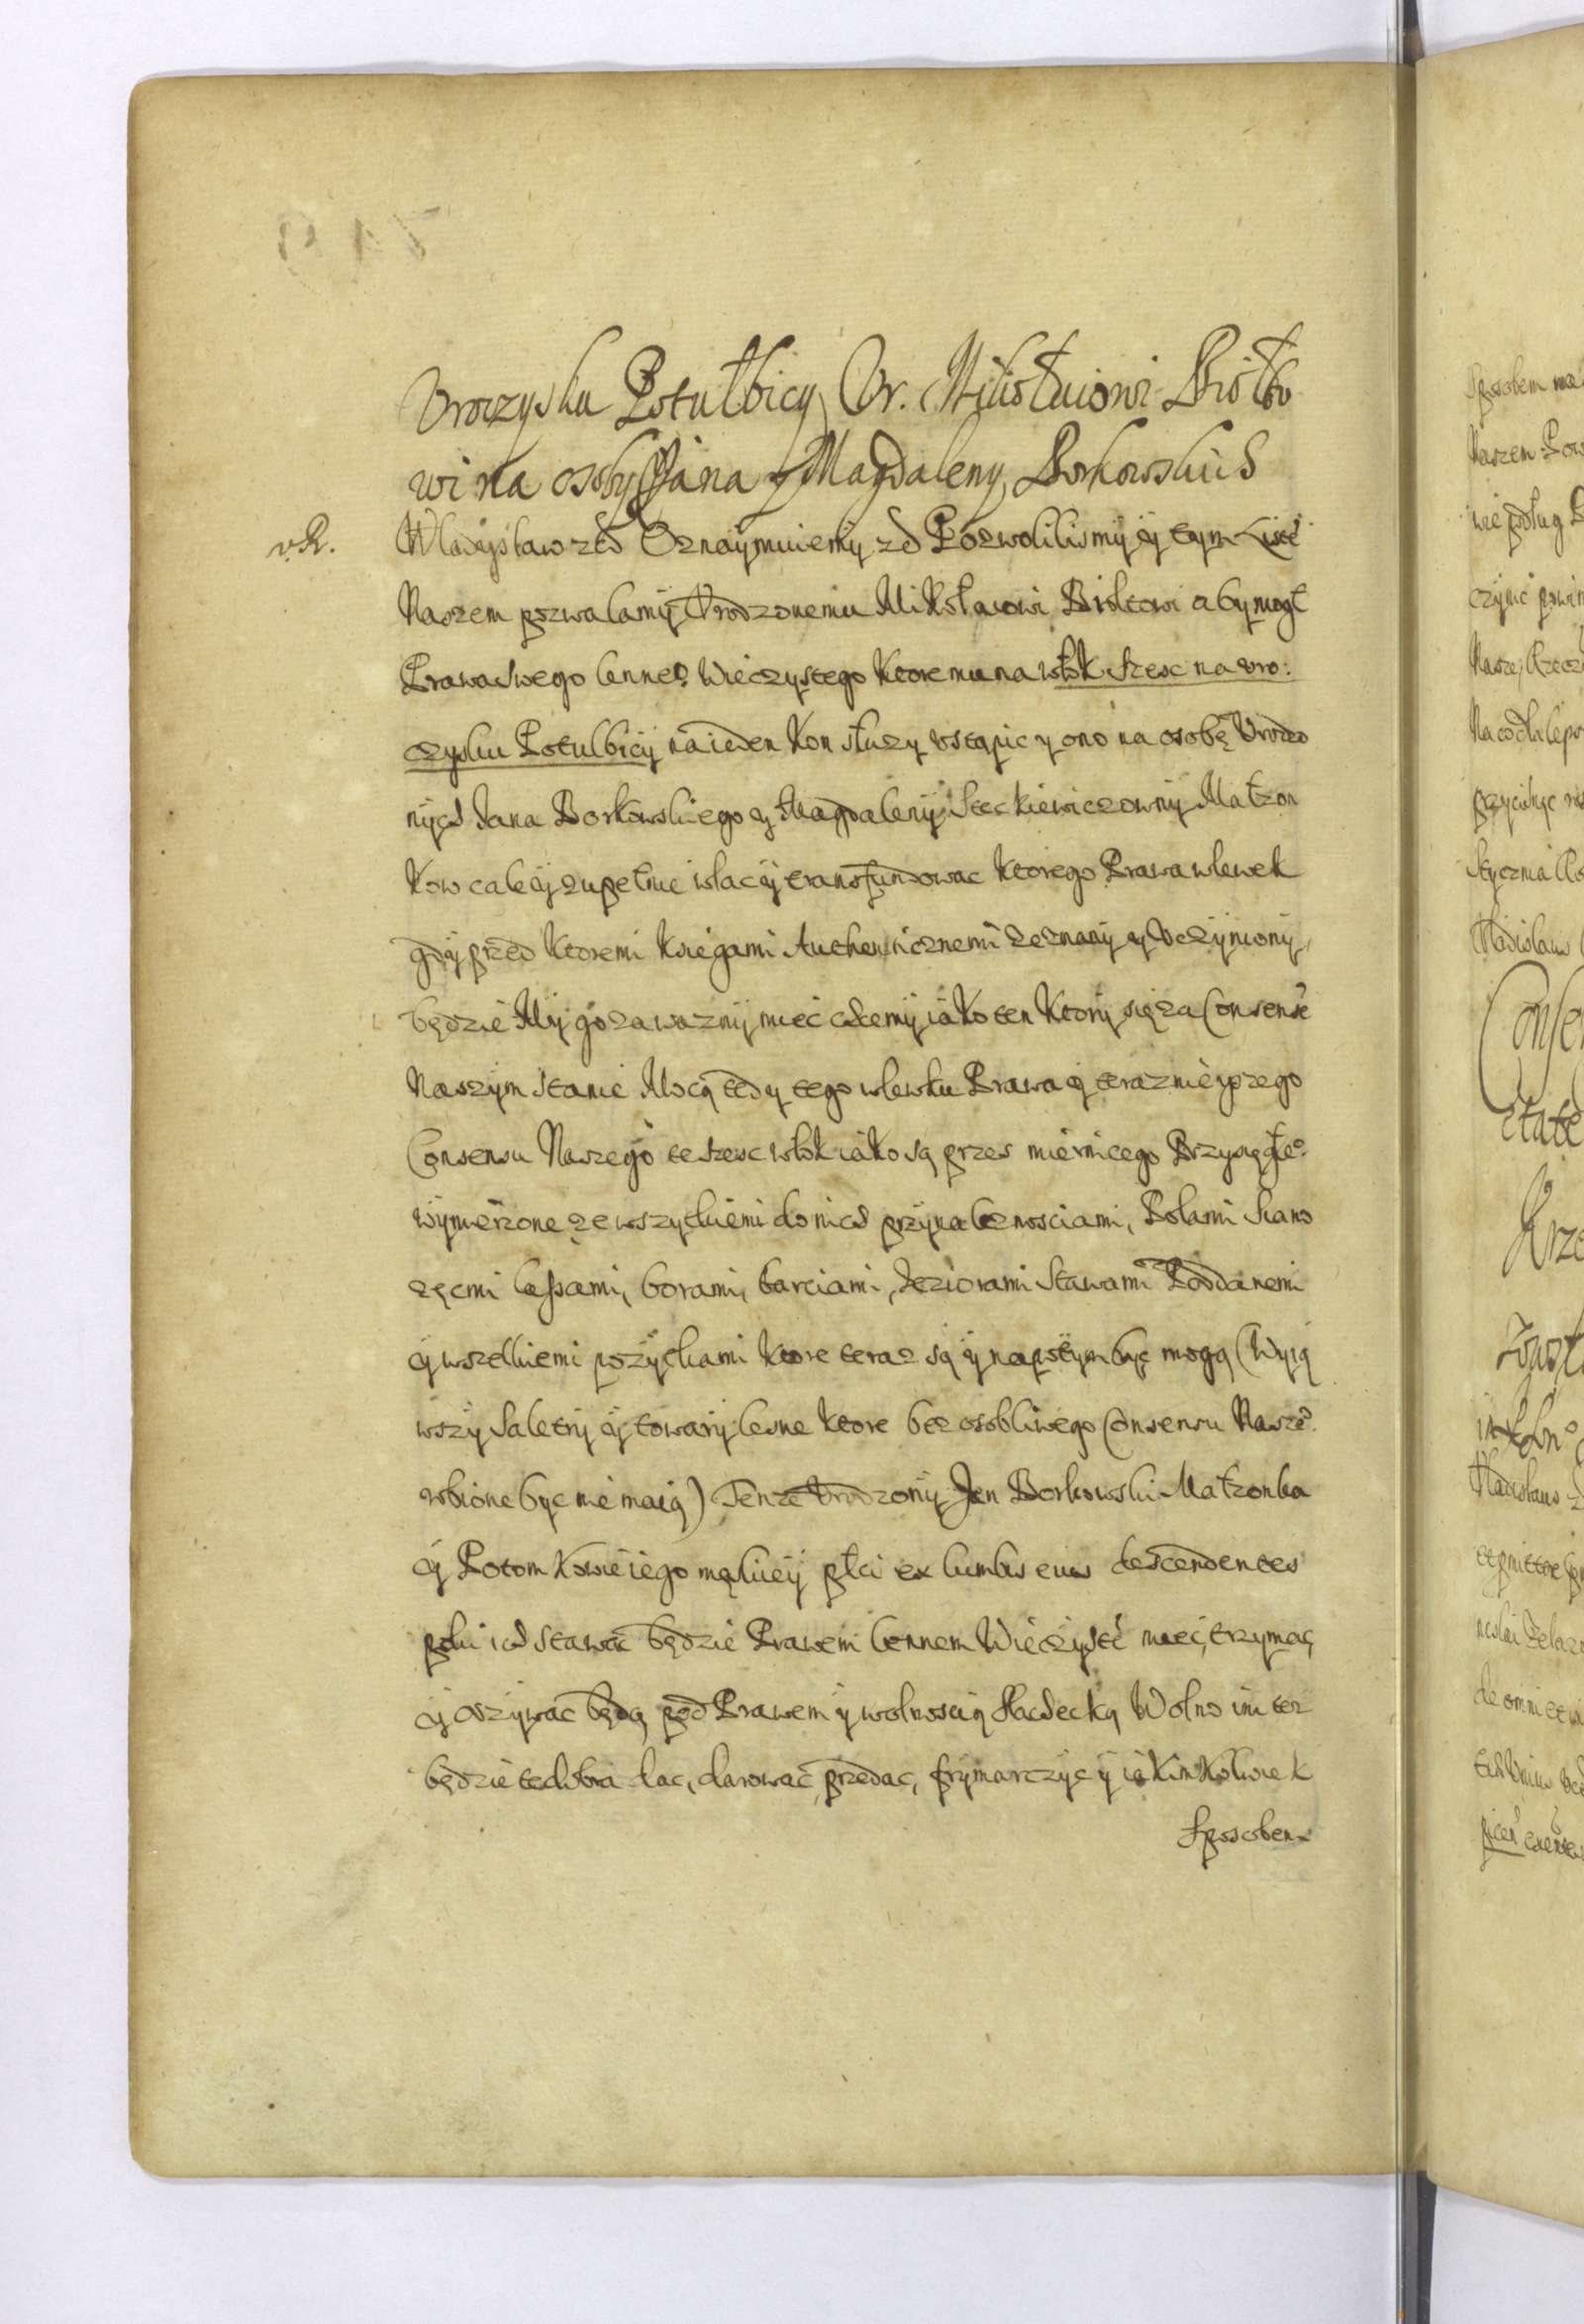 Uroczysku Potulbicy Ur. Mikołaiowi Biołto
wi na osoby Jana y Magdaleny Borkowskich
v. R.
Władysław etc Oznaymuiemy etc Pozwolilismy y tym List
Naszem pozwalamy Urodzonemu Mikołaiowi Bioltowi aby mogł
Prawa swego lenneo Wieczystego ktore mu na włok szesc na uro:
czysku Potulbicy na ieden Kon słuzy ustąpic y ono na osobę Urodzo
nych Jana Borkowskiego y Magdaleny Steckiewiczowny Małzon
kow cale y zupełnie wlac y transfundowac ktorego Prawa wlewek
gdy przed ktoremi ksiegami Authenticznemi zeznany y uczyniony
będzie My go za wazny miec chcemy iako ten ktory się za Consense
Naszym stanie Mocą tedy tego wlewku Prawa y teraznieyszego
Consensu Naszego te szesc włok iako są przes miernicego Przysięgłeo
wymierzone ze wszytkiemi do nich przynaleznosciami, Rolami siano
zęcmi lassami, borami, barciami, Jeziorami Stawami Poddanemi
y wszelkiemi pozytkami ktore teraz są y napotym byc mogą (Wyią
wszy Saletry y towary lesne ktore bez osobliwego Consensu Nasze
robione byc nie maią) Tenze Urodzony Jan Borkowski Małzonka
y Potomkowie iego męskiey płci ex lumbis eius descendentes
poki ich stawac będzie Prawem lennem Wieczyste miec, trzymac,
y uzywac będą pod Prawem y wolnoscią Slachecką Wolno im tez
będzie te dobra dac, darowac przedac, frymarczyc y iakimkolwiek
sposobem
Sposobem
Naszem
wie podług
czynic
Nasze Rzecz
Na co dla lepsz
przycisnąc
Stycznia
Władisław